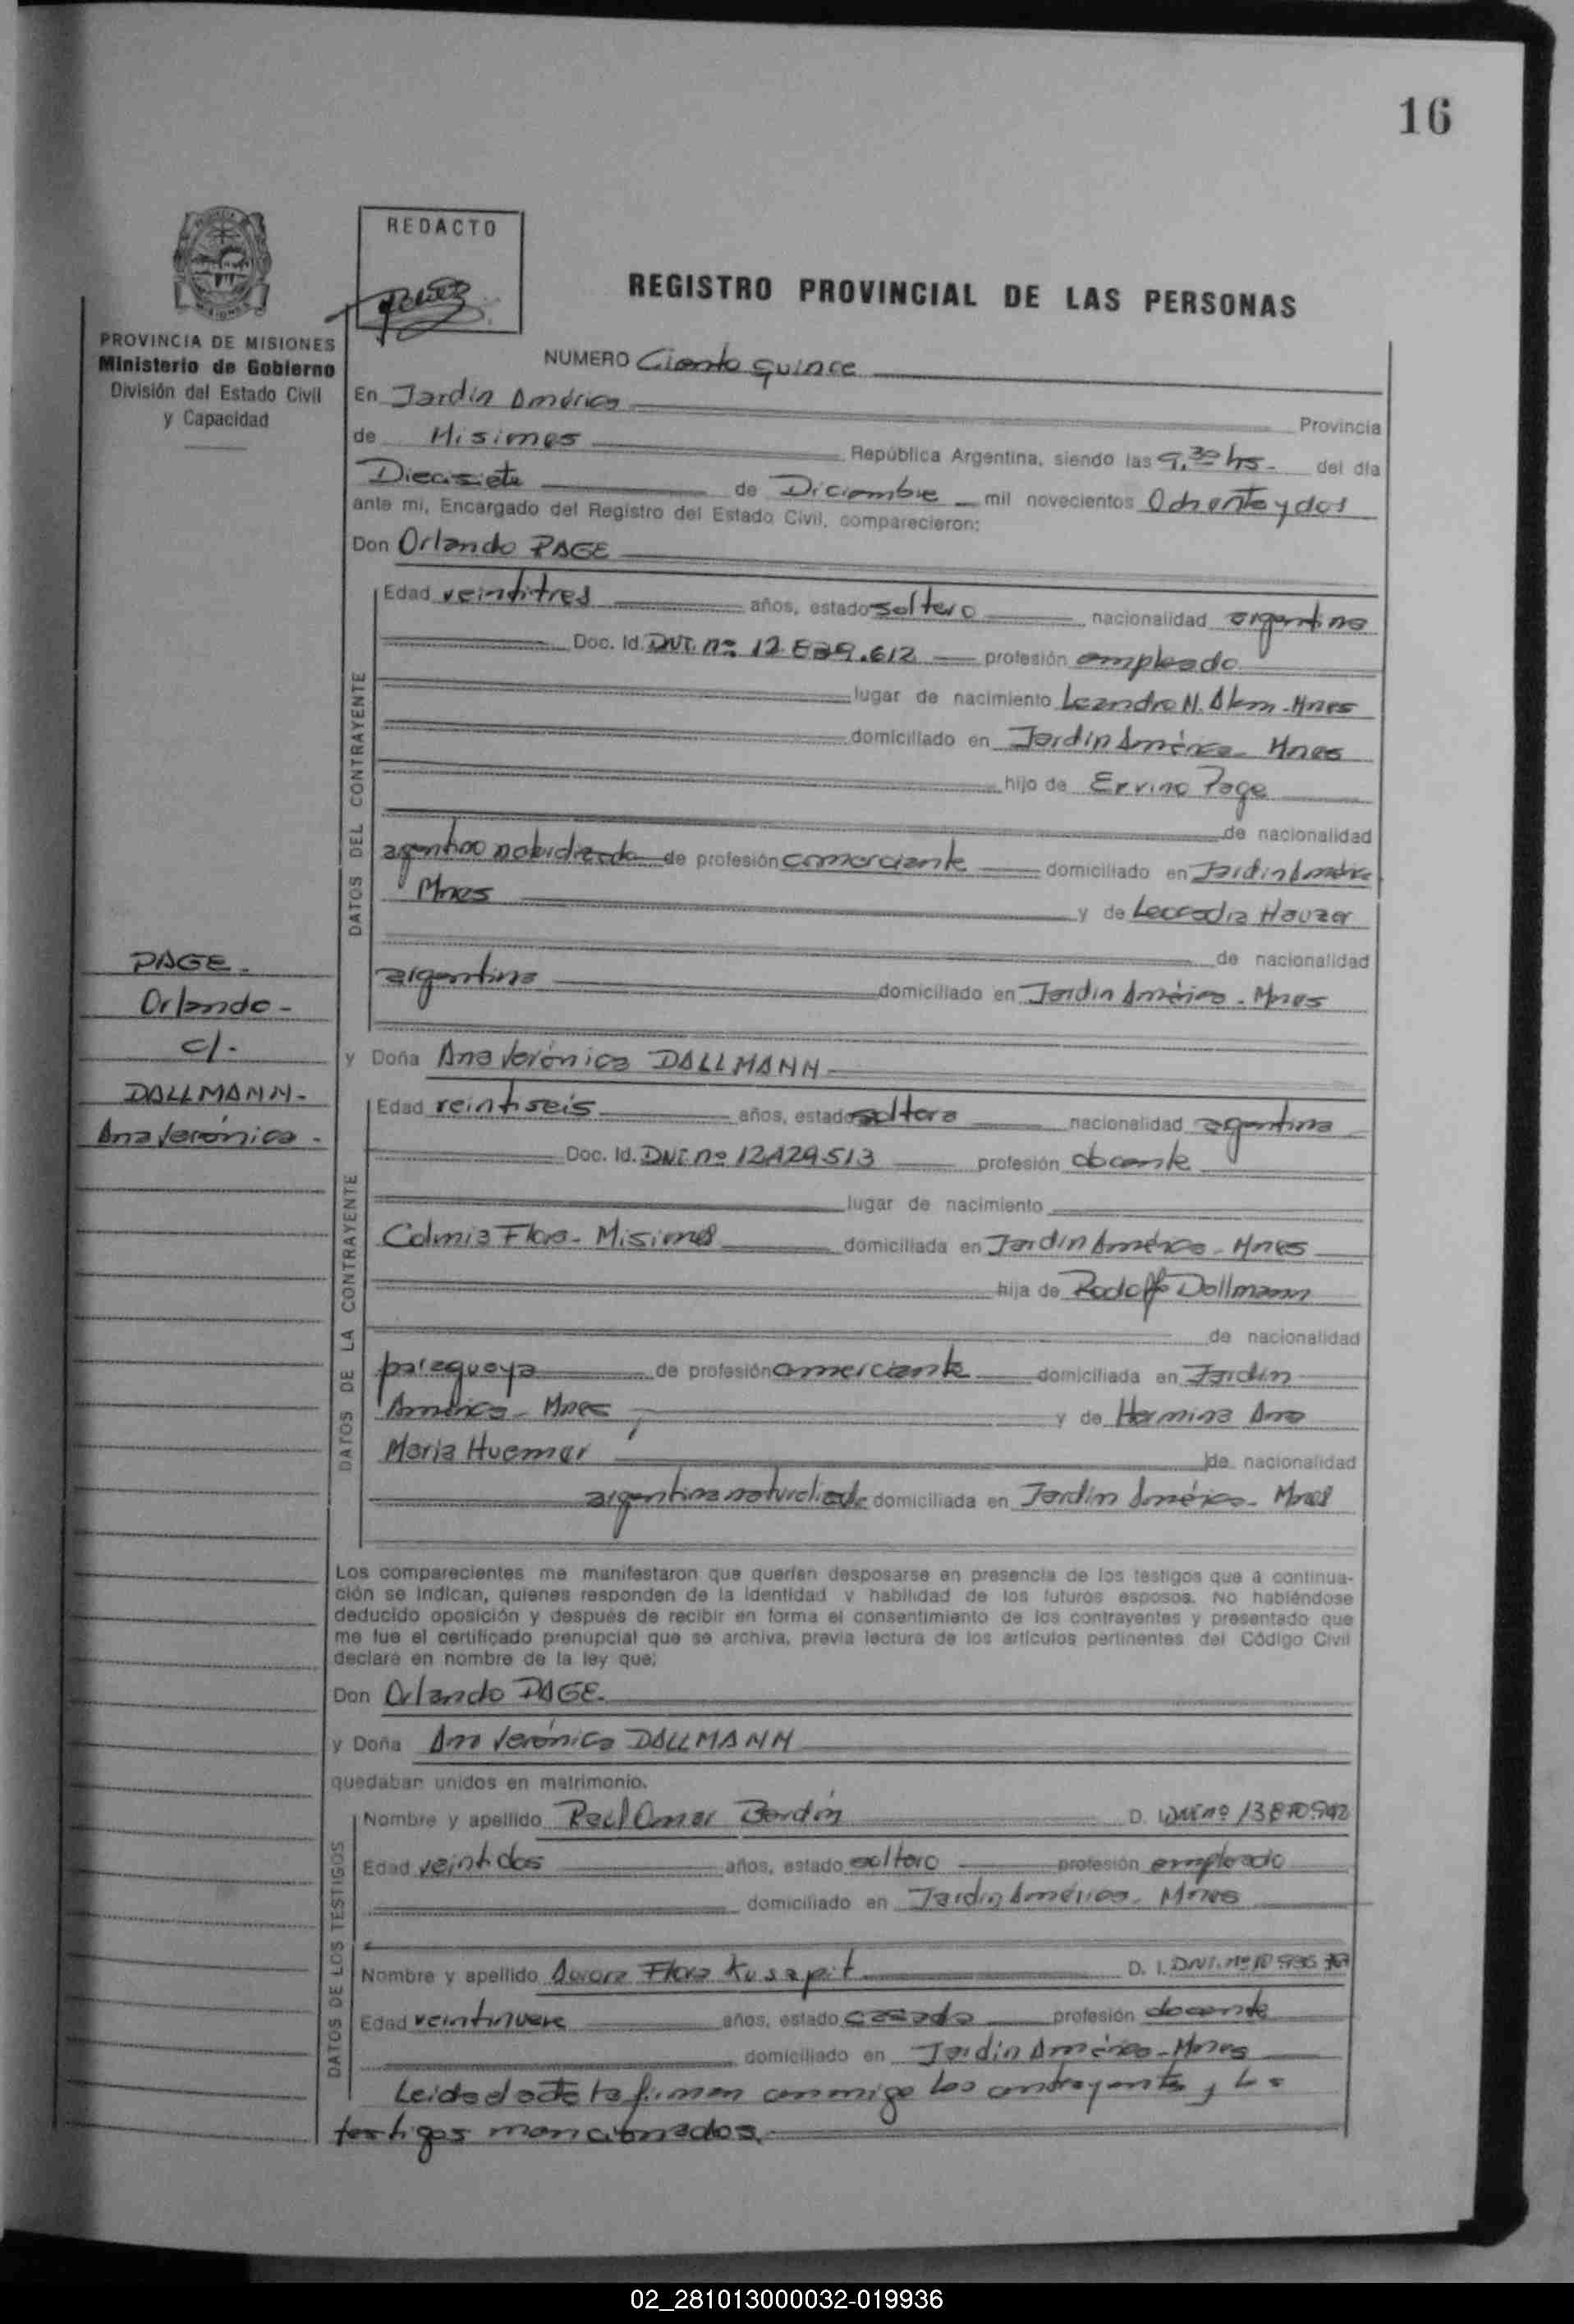 16
REDACTO
REGISTRO PROVINCIAL DE LAS PERSONAS
PROVINCIA DE MISIONES
Ministerio de Gobierno
División del Estado Civil
y Capacidad
NUMERO Ciento quince
En Jardín América
Provincia
de Misiones República Argentina, siendo las 9,30 hs- del día
Diecisiete de Diciembre mil novecientos Ochenta y dos
ante mi, Encargado del Registro del Estado Civil, comparecieron:
Don Orlando PAGE
DATOS DEL CONTRAYENTE
Edad veintitres años, estado soltero nacionalidad argentina
Doc. Id. DNI. nº 12.839.612 profesión empleado
lugar de nacimiento Leandro N. Alem-Mnes
domiciliado en Jardín América- Mnes
hijo de Ervino Page
de nacionalidad
argentino de profesión comerciante domiciliado en Jardín América
Mnes y de Leocadia Hauzer
de nacionalidad
argentina domiciliado en Jardín América- Mnes
PAGE-
Orlando-
c/-
DALLMANN-
Ana Verónica-
y Doña Ana Verónica DALLMANN
DATOS DE LA CONTRAYENTE
Edad veintiseis años, estado soltera nacionalidad argentina
Doc. Id. DNI nº 12.429.513 profesión docente
lugar de nacimiento
Colonia Flora- Misiones domiciliada en Jardín América- Mnes
hija de Rodolfo Dallmann
de nacionalidad
paraguaya de profesión comerciante domiciliada en Jardín
América- Mnes y de Hermina Ana
María Huemer de nacionalidad
argentina naturalizada domiciliada en Jardín América- Mnes
Los comparecientes me manifestaron que querían desposarse en presencia de los testigos que a continua-
ción se indican, quienes responden de la identidad y habilidad de los futuros esposos. No habiéndose
deducido oposición y después de recibir en forma el consentimiento de los contrayentes y presentado que
me fue el certificado prenupcial que se archiva, previa lectura de los artículos pertinentes del Código Civil
declaré en nombre de la ley que:
Don Orlando PAGE.
y Doña Ana Verónica DALLMANN
quedaban unidos en matrimonio.
DATOS DE LOS TESTIGOS
Nombre y apellido Raúl Omar Bordón D. I. DNI nº 13.870.942
Edad veintidos años, estado soltero profesión empleado
domiciliado en Jardín América- Mnes
Nombre y apellido Aurora Flora Kusapit D. I. DNI. nº
Edad veintinueve años, estado casada profesión docente
domiciliado en Jardín América- Mnes
Leída el acta la firman conmigo los contrayentes y los
testigos mencionados.
02_281013000032-019936